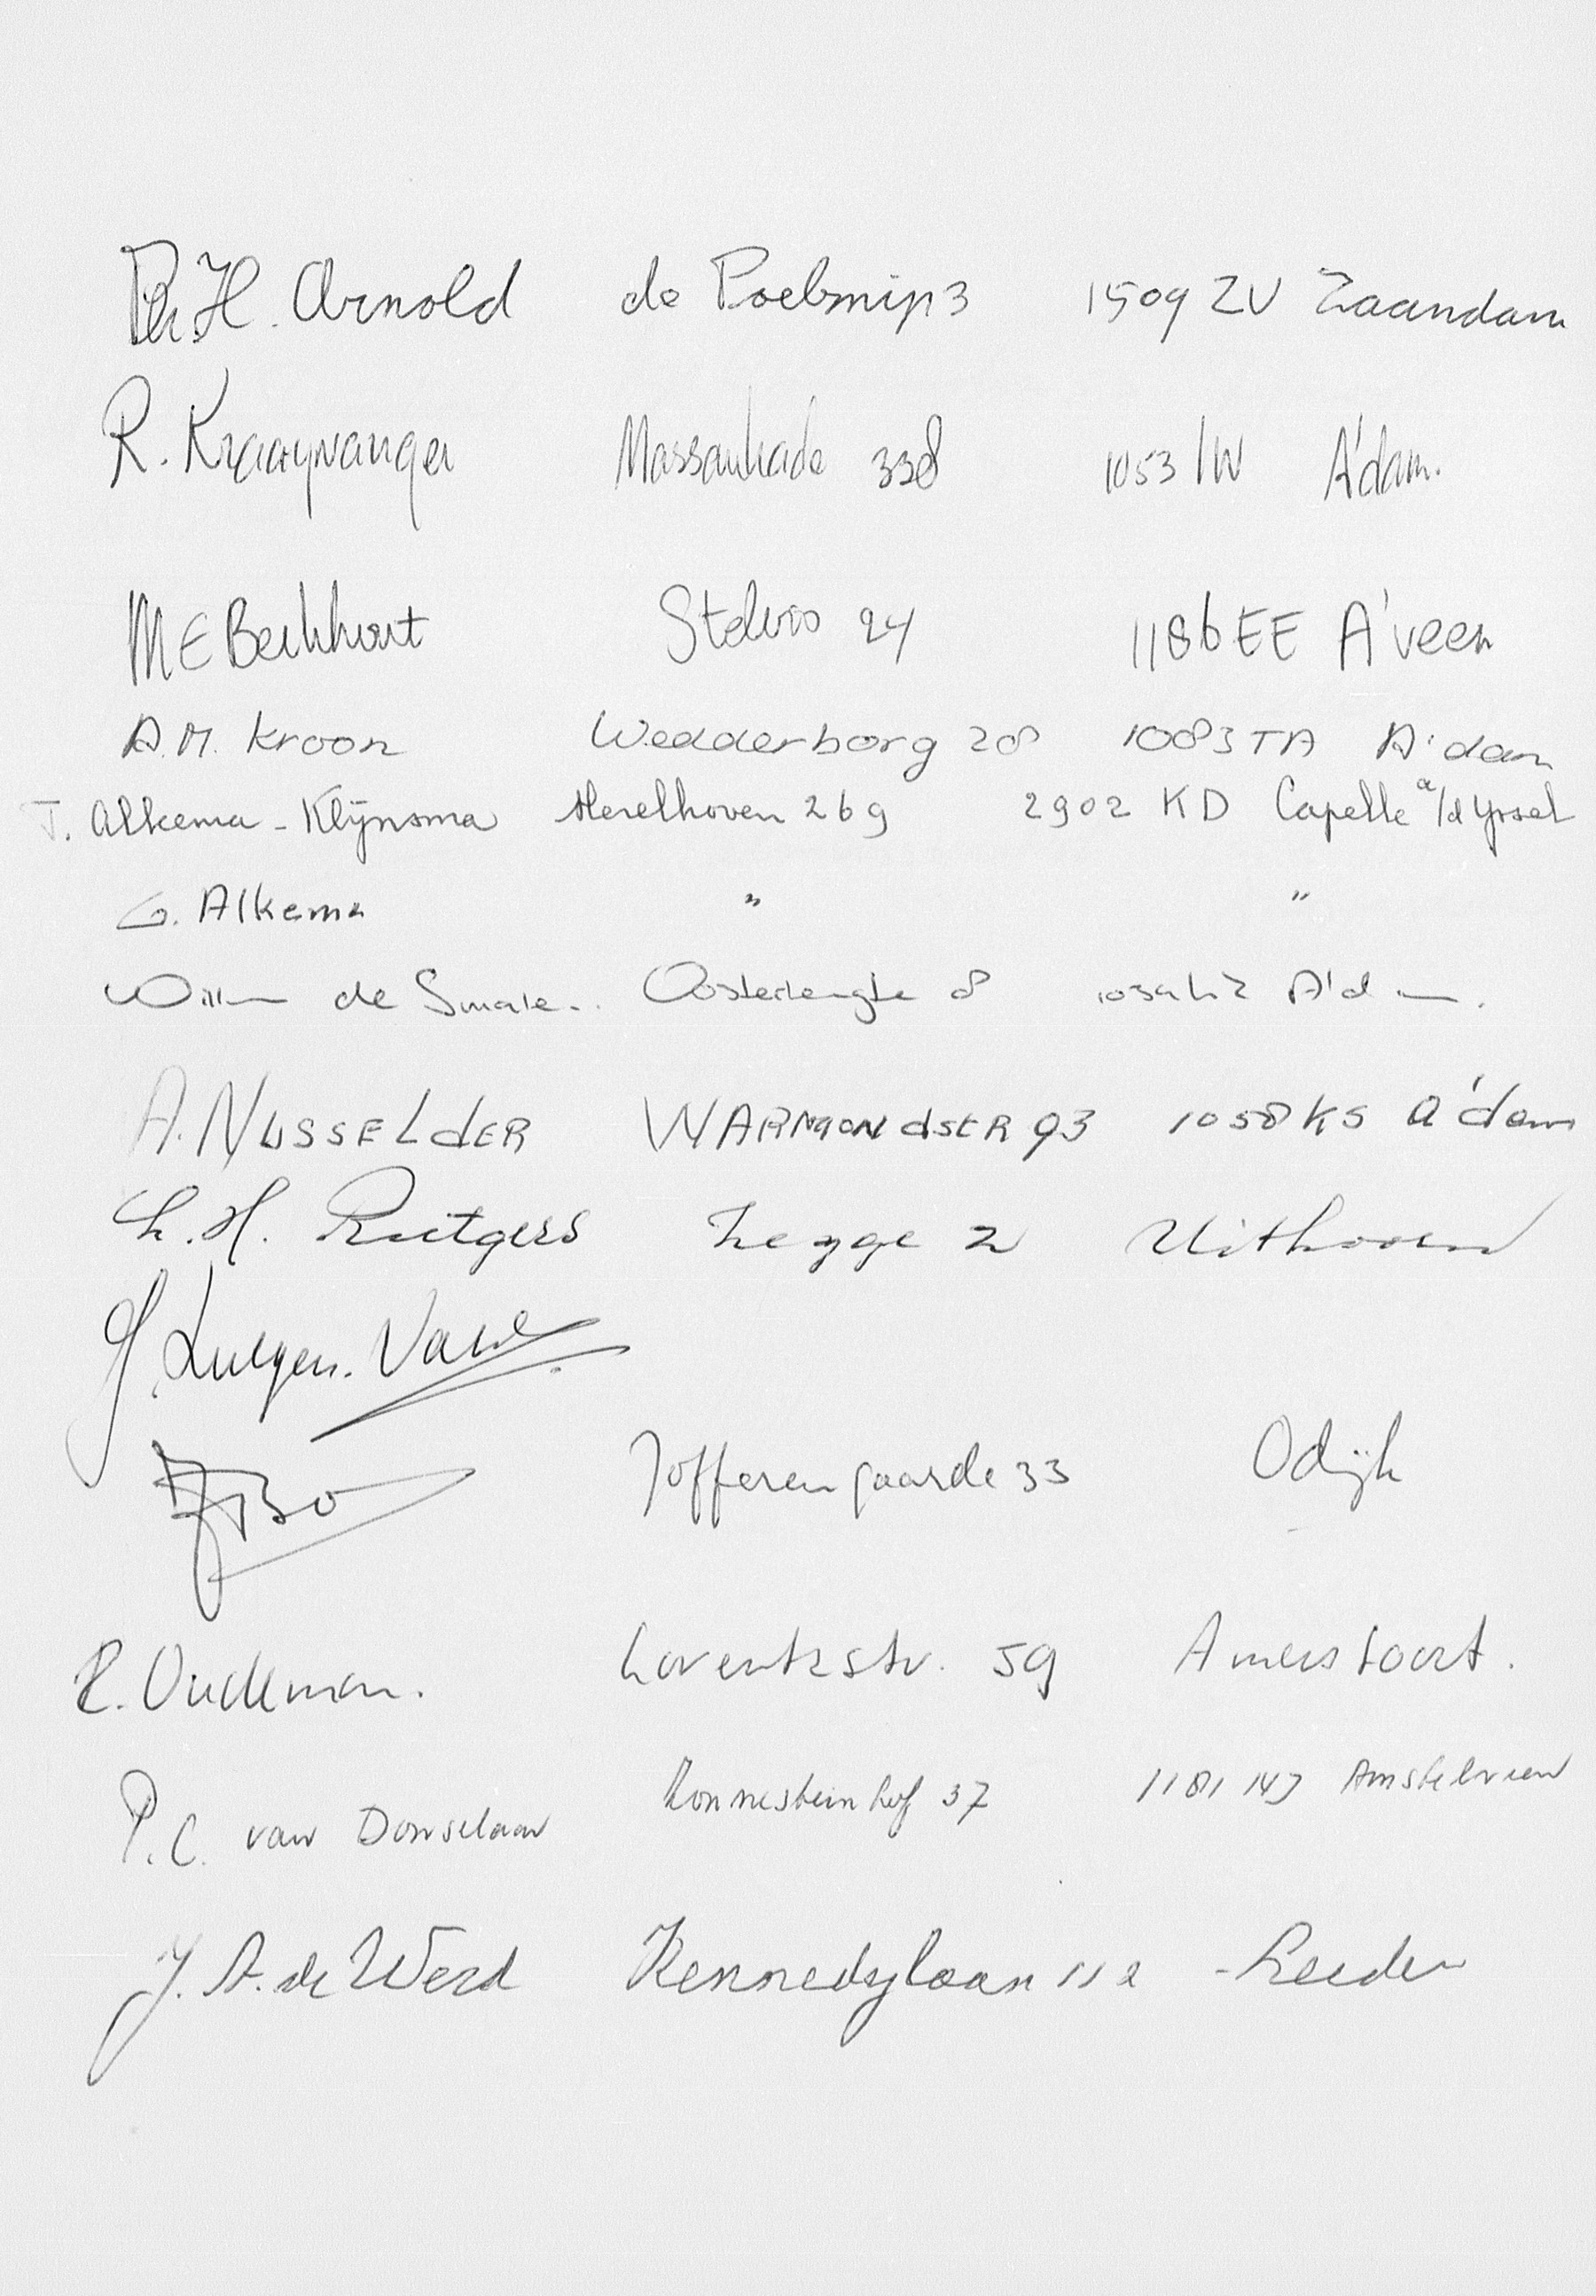 H. Arnold de Poelsnip 3 1509 ZV Zaandam
R. Kraayvanger Massaukade 338 1053 A'dam.
M E Berkhout Stelvio 24 1186 EE A'veen
A.M. Kroon Wedderborg 28 1083 TA A'dam
J. Alkema - Klijnsma Merelhoven 269 2902 KD Capelle a/d Yssel
G. Alkema " "
de Oosterlengte 8 A'dam.
A. NUSSELdER WARMONdSTR 93 1058 KS a'dam
L. H. Rutgers Zegge 2 Uithoorn
Jofferengaarde 33 Odijk
R. Oudeman. Lorentzstr. 59 Amersfoort.
P.C. van Donselaar Ronnesteinhof 37 1181 Amstelveen
J. A. de Werd Kennedylaan